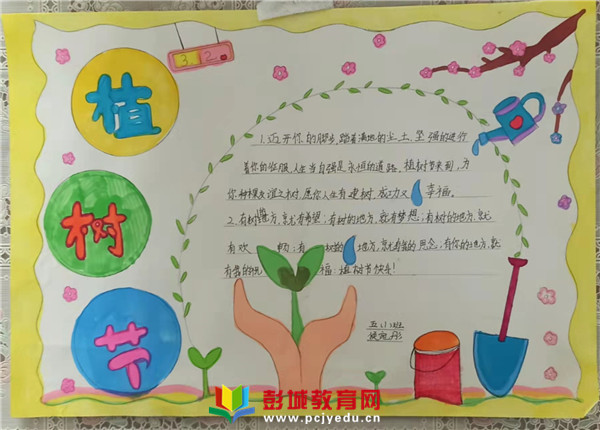 植
树
节
3 2
1.迈开你的脚步,踏着满地的尘土,坚强的进行
着你的征服,人生当自强是永恒的道路,植树节来到,为
你种棵友谊之树,愿你人生有建树,成功又幸福。
2.有树的地方,就有希望;有树的地方,就有梦想;有树的地方,就
有欢 畅;有 地方,就有我的思念;有你的地方,就
有我的祝 福。植树节快乐!
五(1)班
彭城教育网
www.pcjyedu.cn